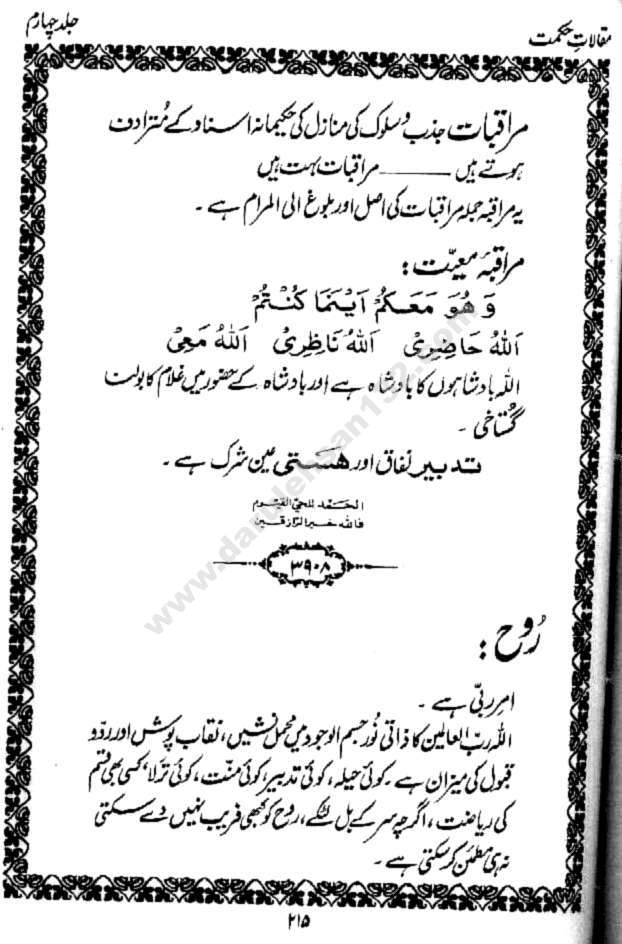 مقالاتِ حکمت
جلد چہارم
مراقبات جذب و سلوک کی منازل کی حکیمانہ اسناد کے مُترادف
ہوتے ہیں ــــــــــ مراقبات بہت ہیں
یہ مراقبہ جملہ مراقبات کی اصل اور بلوغ الی المرام ہے ۔
مراقبۂ معیّت :
وَ هُوَ مَعَكُمْ اَيْنَمَا كُنْتُمْ
اَللّٰهُ حَاضِرِیْ اَللّٰهُ نَاظِرِیْ اَللّٰهُ مَعِیْ
اللہ بادشاہوں کا بادشاہ ہے اور بادشاہ کے حضور میں غلام کا بولنا
گُستاخی ۔
تدبیر نفاق اور ھستی عین شرک ہے ۔
الحمد للحی القیوم
فاللہ خیر الرازقین
۳۹۰۸
رُوح :
امرِ ربّی ہے ۔
اللہ ربّ العالمین کا ذاتی نُور جسم الوجود میں محمل نشیں، نقاب پوش اور ردّ و
قبول کی میزان ہے ۔ کوئی حیلہ، کوئی تدبیر، کوئی منّت، کوئی ترلا، کسی بھی قسم
کی ریاضت ، اگرچہ سر کے بل لٹکے، روح کو کبھی فریب نہیں دے سکتی
نہ ہی مطمئن کر سکتی ہے ۔
۲۱۵
www.darulehsan152.com